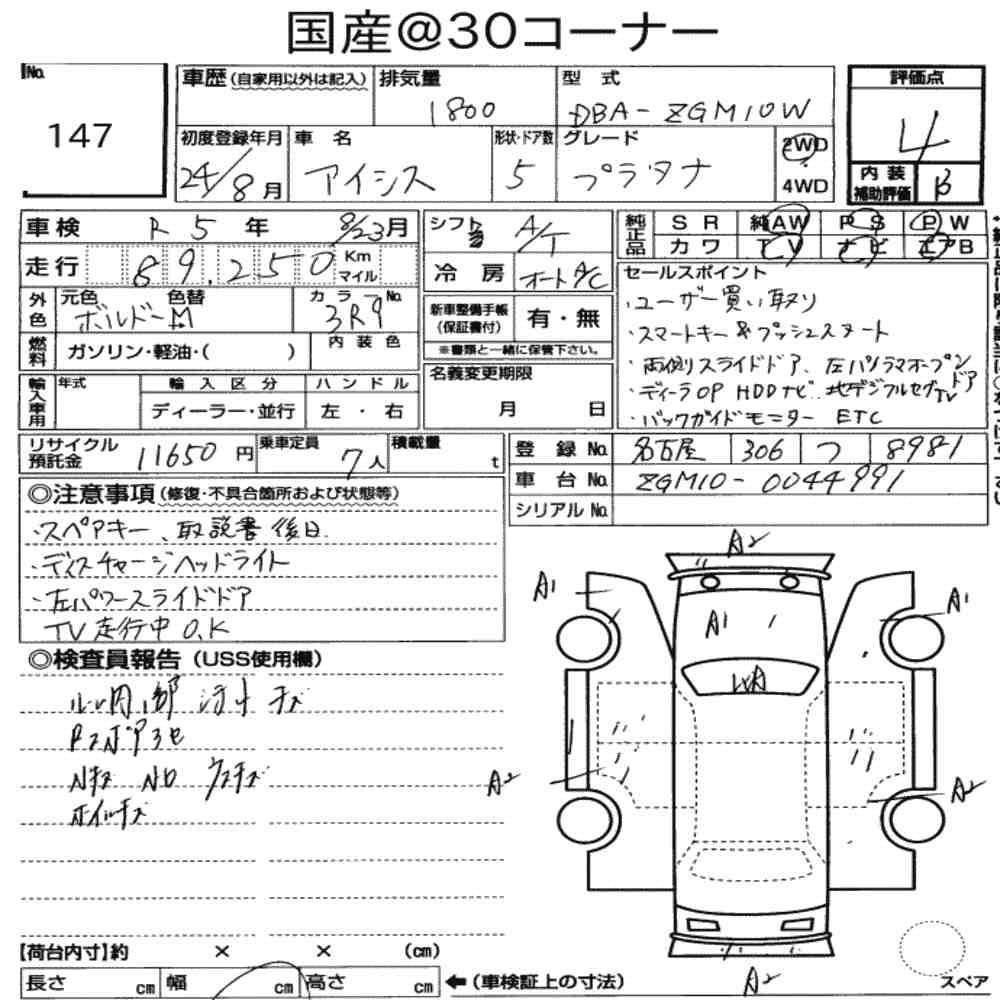 国産@30コーナー
No. 147
車歴 (自家用以外は記入) 排気量 型式 評価点
1800 DBA-ZGM10W 4
初度登録年月 車名 形状・ドア数 グレード 2WD ・ 4WD
24/8月 アイシス 5 プラタナ
内装補助評価 B
車検 R5年 8/23月
シフト A/T
純正品 SR 純AW PS PW
カワ TV ナビ エアB
走行 89,250 Km マイル
冷房 オートA/C
セールスポイント
・ユーザー買い取り
・スマートキー&プッシュスタート
・両側スライドドア、左パノラマオープンドア
・ディーラOP HDDナビ 地デジフルセグTV
・バックガイドモニター ETC
外色 元色 色替 カラーNo.
ボルドーM 3R9
新車整備手帳(保証書付) 有・無
※書類と一緒に保管下さい。
燃料 ガソリン・軽油・( ) 内装色
名義変更期限 月 日
輸入車用 年式 輸入区分 ハンドル
ディーラー・並行 左・右
リサイクル預託金 11650円 乗車定員 7人 積載量 t
登録No. 名古屋 306 つ 8981
車台No. ZGM10-0044991
シリアルNo.
◎注意事項 (修復・不具合箇所および状態等)
・スペアキー、取説書 後日
・ディスチャージヘッドライト
・左パワースライドドア
TV走行中O.K
◎検査員報告 (USS使用欄)
ホイルキズ
A2
A1 A1
A1
A2 A2
A2
【荷台内寸】約 × × (cm)
長さ cm 幅 cm 高さ cm ←(車検証上の寸法)
スペア